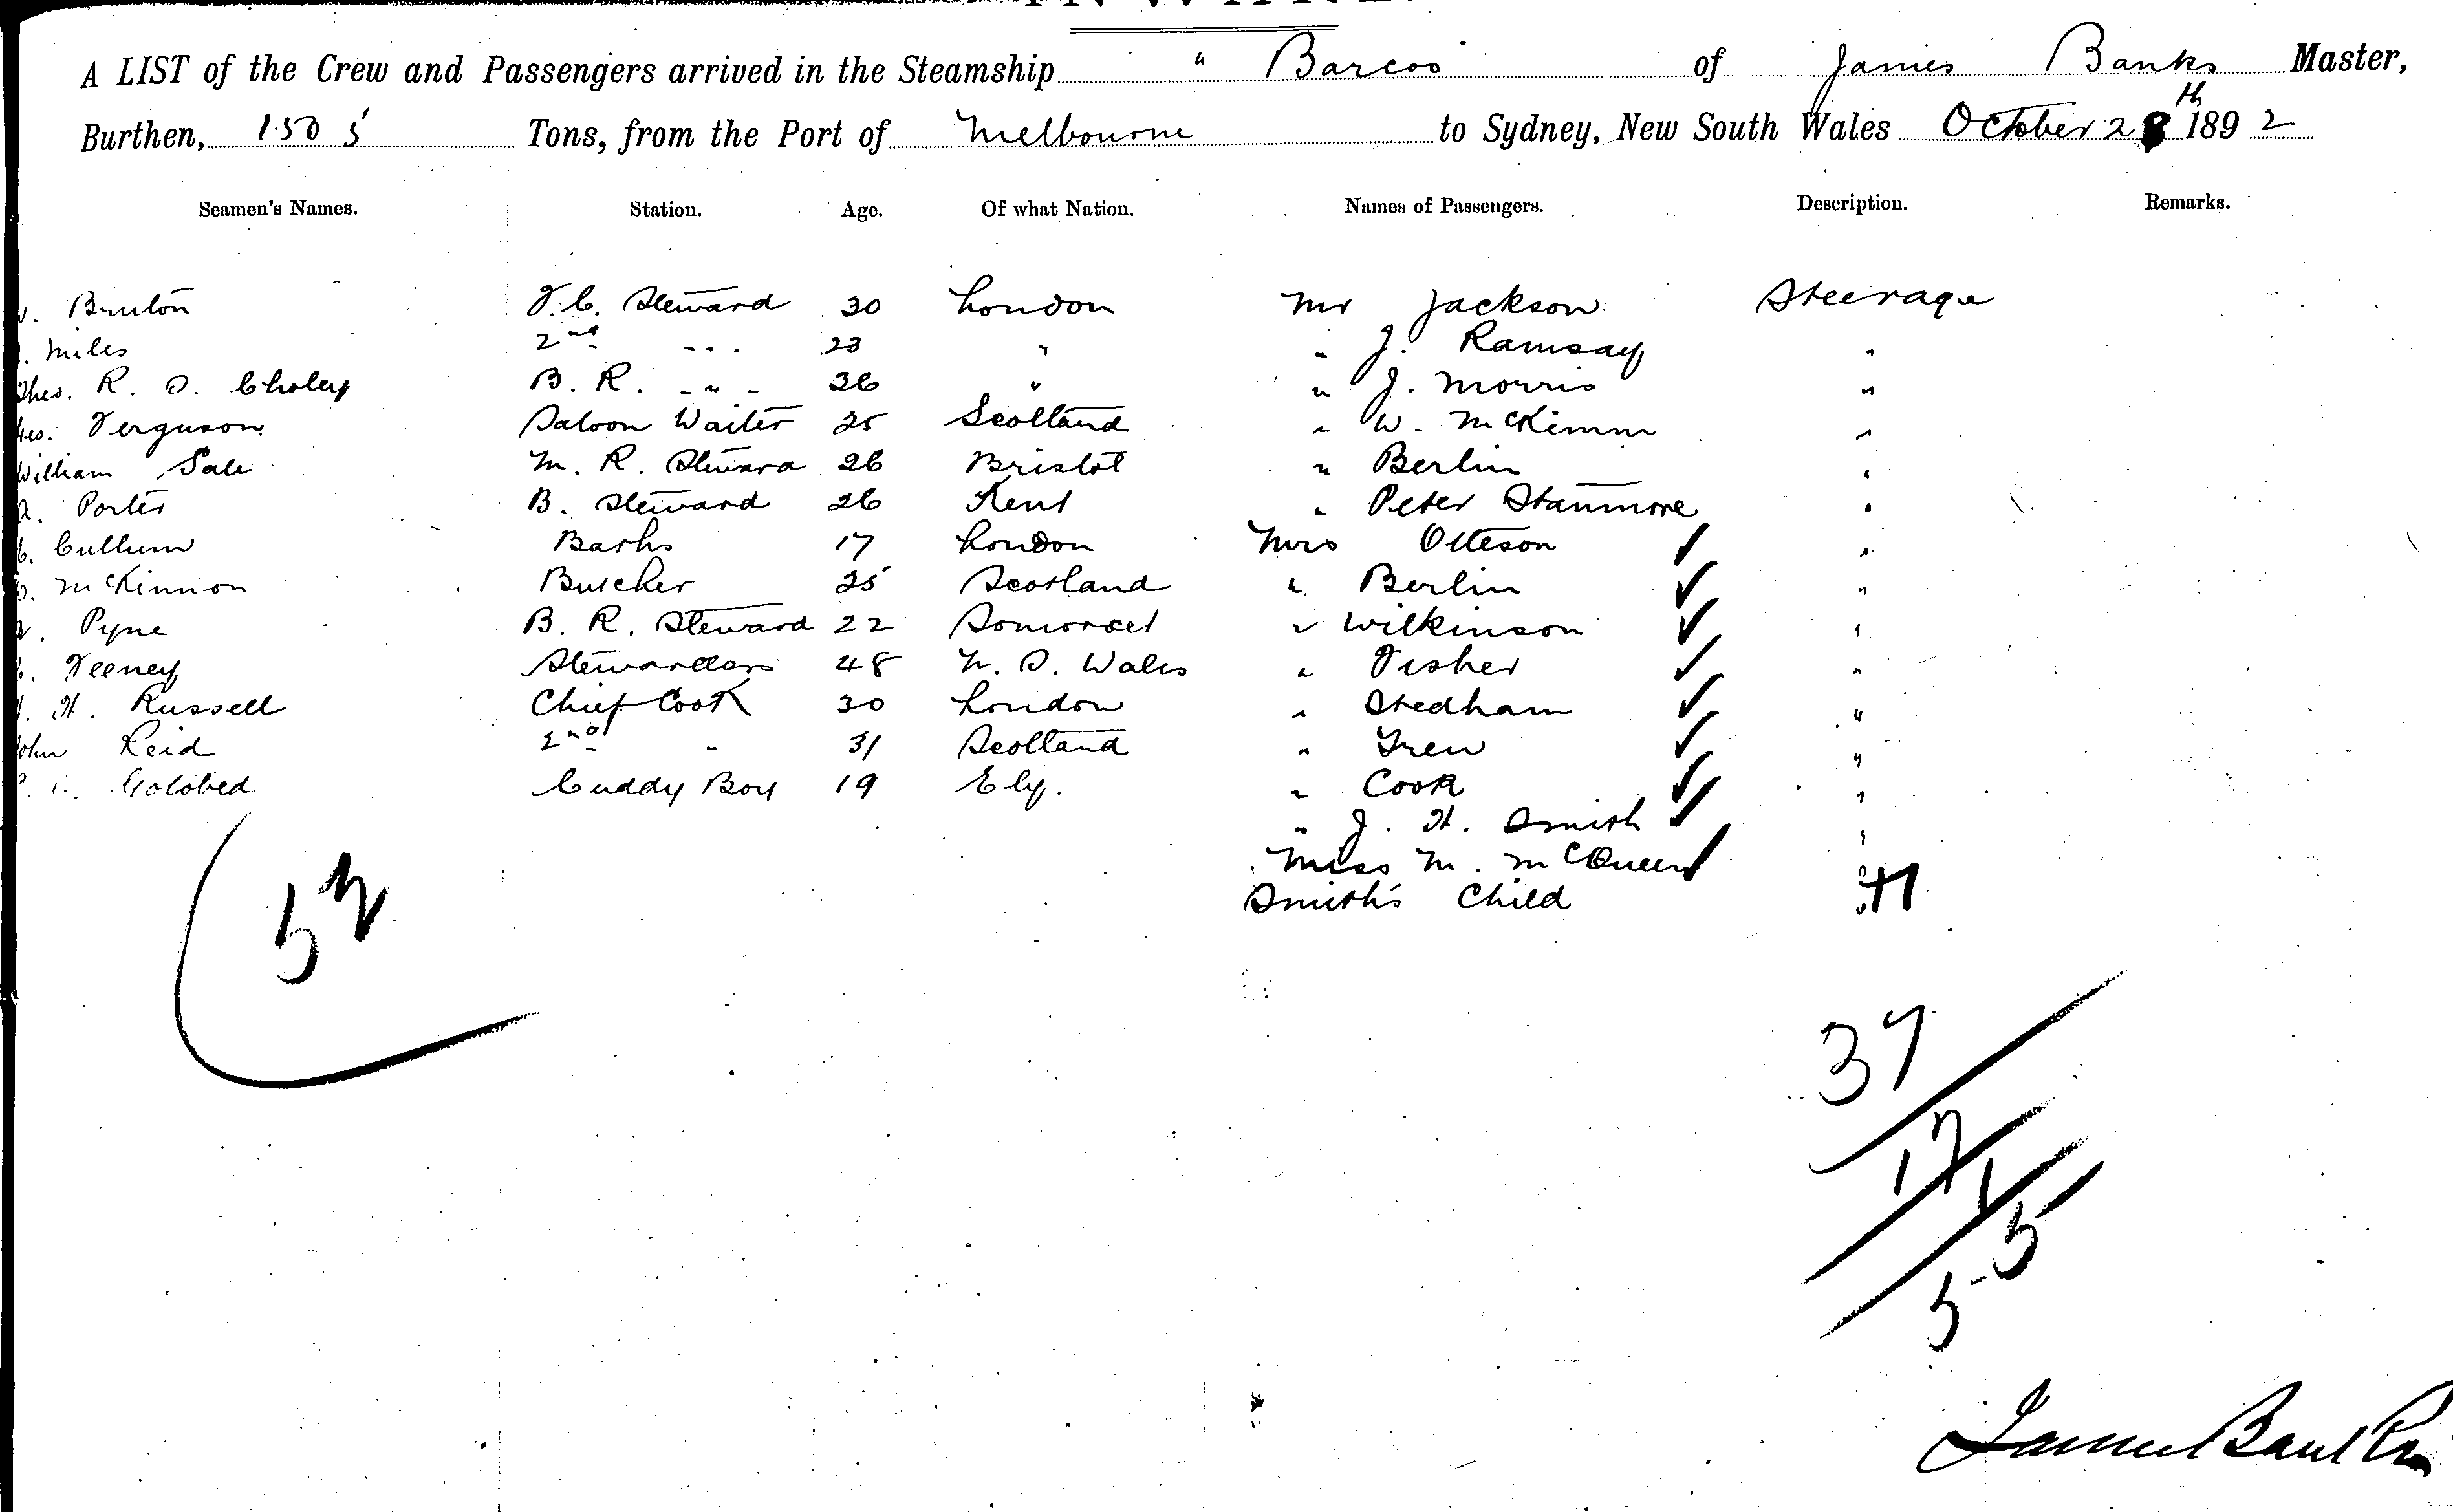 A LIST of the Crew and Passengers arrived in the Steamship " Barcoo of James Banks Master,
Burthen, 1505 Tons, from the Port of Melbourne to Sydney, New South Wales October 28th 1892
Seamen's Names. Station. Age. Of what Nation. Names of Passengers. Description. Remarks.
Bruton F.C. Steward 30 London Mr Jackson Steerage
Miles 2nd " 23 " " J. Ramsay "
Theo. R. S. Choley B. R. " 26 " " J. Morris "
Geo. Ferguson Saloon Waiter 25 Scotland " W. McKimm "
William Sale M. R. Steward 26 Bristol " Berlin "
Porter B. Steward 26 Kent " Peter Stanmore "
C. Cullum Barks 17 London Mrs Otteson ✓ "
McKinnon Butcher 25 Scotland " Berlin ✓ "
Pyne B. R. Steward 22 Somerset " Wilkinson ✓ "
Feeney Stewardess 48 N. S. Wales " Fisher ✓ "
H. Russell Chief Cook 30 London " Stedham ✓ "
John Reid 2nd " 31 Scotland " Tren ✓ "
Golobed Cuddy Boy 19 Ely. " Cook ✓ "
" J. H. Smith ✓ "
Miss M. McQueen ✓ "
Smith's Child "
52
37
17
1
55
James Banks